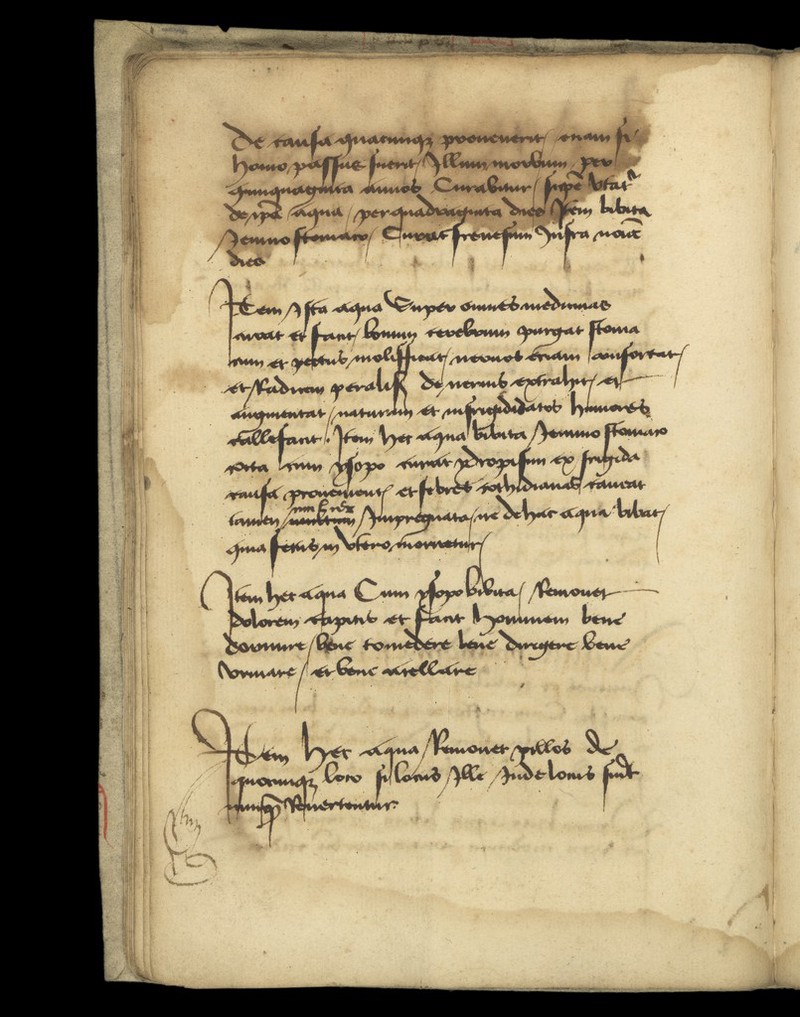 De causa quacunqz prouenerit / etiam si
homo / passus fuerit / Illum morbum / per
quinquaginta annos Curabitur / sepe vtatr
de ipa aqua / per quadraginta dies Item bibita
Ieiuno stomaco / Curat frenesim Infra
dies
Item Ista aqua Super omnes medicinas
iuuat et facit / bonum cerebrum purgat stoma
cum et pectus / mollifficat / neruos eciam confortat /
et Radicem peralis de neruis extrahit / et
augmentat / naturam et infrigididatos humores
callefacit . Item hec aqua bibita / Ieiuno stomaco
cocta cum ysopo curat ydropisim ex frigida
causa prouenient et febres cothidianas caueat
tamen Impregnata / ne de hac aqua bibat /
quia fetus / in vtero / morietur /
Item hec aqua Cum ysopo bibita / Remouet
dolorem capitis et facit hominem bene
dormire / bene comedere bene dirigere bene
vrinare / et bene anellare
Item hec aqua / Remouet pillos de
quocunqz loco si locus Ille Inde lotus
nunqz Reuertentur